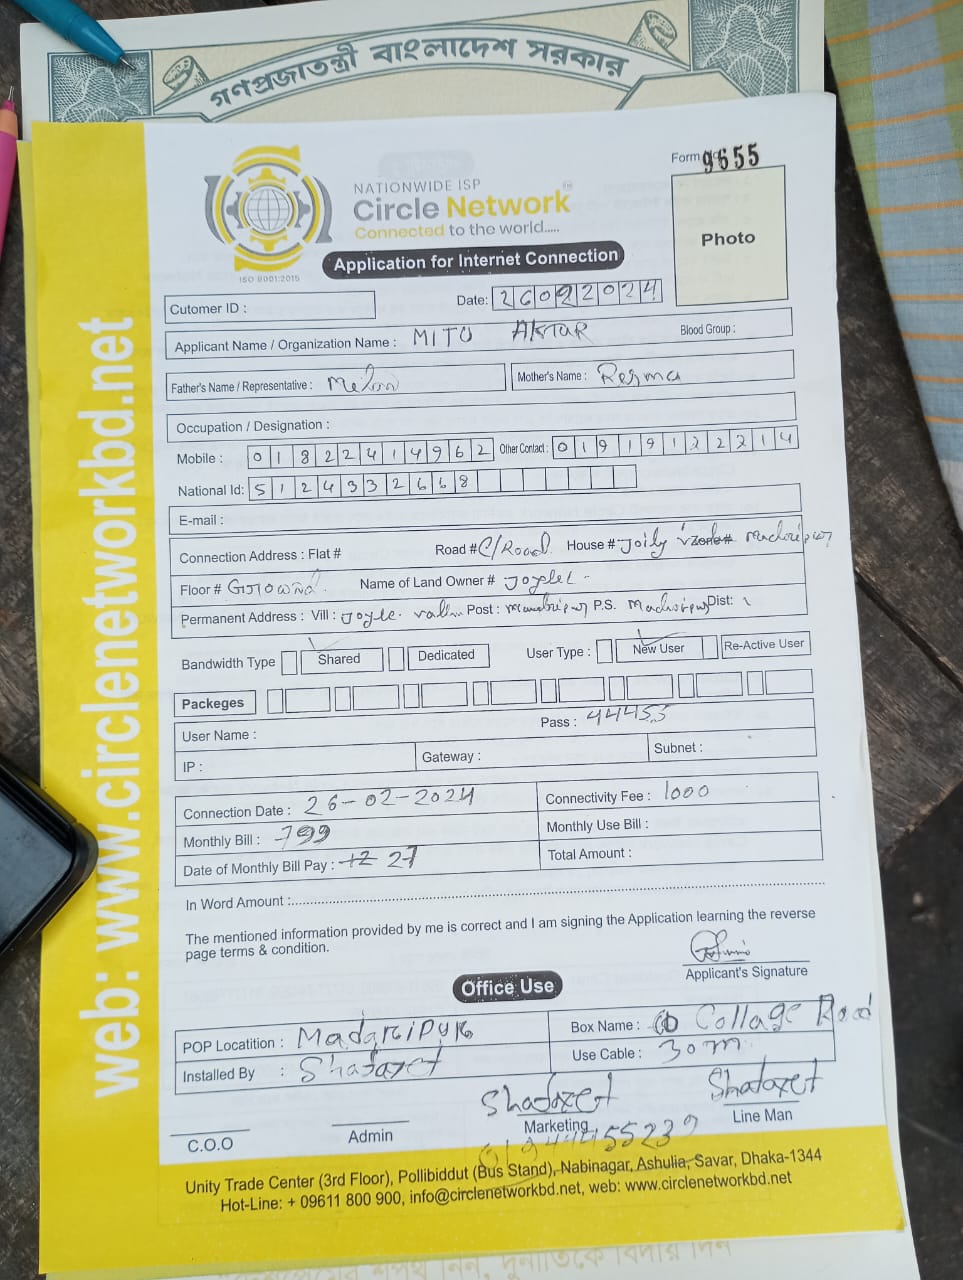 গণপ্রজাতন্ত্রী বাংলাদেশ সরকার
Form 9655
NATIONWIDE ISP
Circle Network
Connected to the world.....
ISO 9001:2015
Photo
Application for Internet Connection
Cutomer ID :
Date: 26022024
Applicant Name / Organization Name : MITU AKTAR Blood Group :
Father's Name / Representative : Mother's Name : Resma
Occupation / Designation :
Mobile : 01822414962 Other Contact : 01919122214
National Id: 5124332668
E-mail :
Connection Address : Flat # Road # C/Road House # Joily Zone#
Floor # Name of Land Owner #
Permanent Address : Vill : Post : P.S. Dist:
Bandwidth Type Shared Dedicated User Type : New User Re-Active User
Packeges
User Name : Pass : 44455
IP : Gateway : Subnet :
Connection Date : 26-02-2024 Connectivity Fee : 1000
Monthly Bill : 799 Monthly Use Bill :
Date of Monthly Bill Pay : 12 27 Total Amount :
In Word Amount :
The mentioned information provided by me is correct and I am signing the Application learning the reverse
page terms & condition.
Applicant's Signature
Office Use
POP Locatition : Madaripur Box Name : Collage Road
Installed By : Shafaxet Use Cable : 30m
Shafaxet Shafaxet
C.O.O Admin Marketing Line Man
Unity Trade Center (3rd Floor), Pollibiddut (Bus Stand), Nabinagar, Ashulia, Savar, Dhaka-1344
Hot-Line: + 09611 800 900, info@circlenetworkbd.net, web: www.circlenetworkbd.net
web: www.circlenetworkbd.net